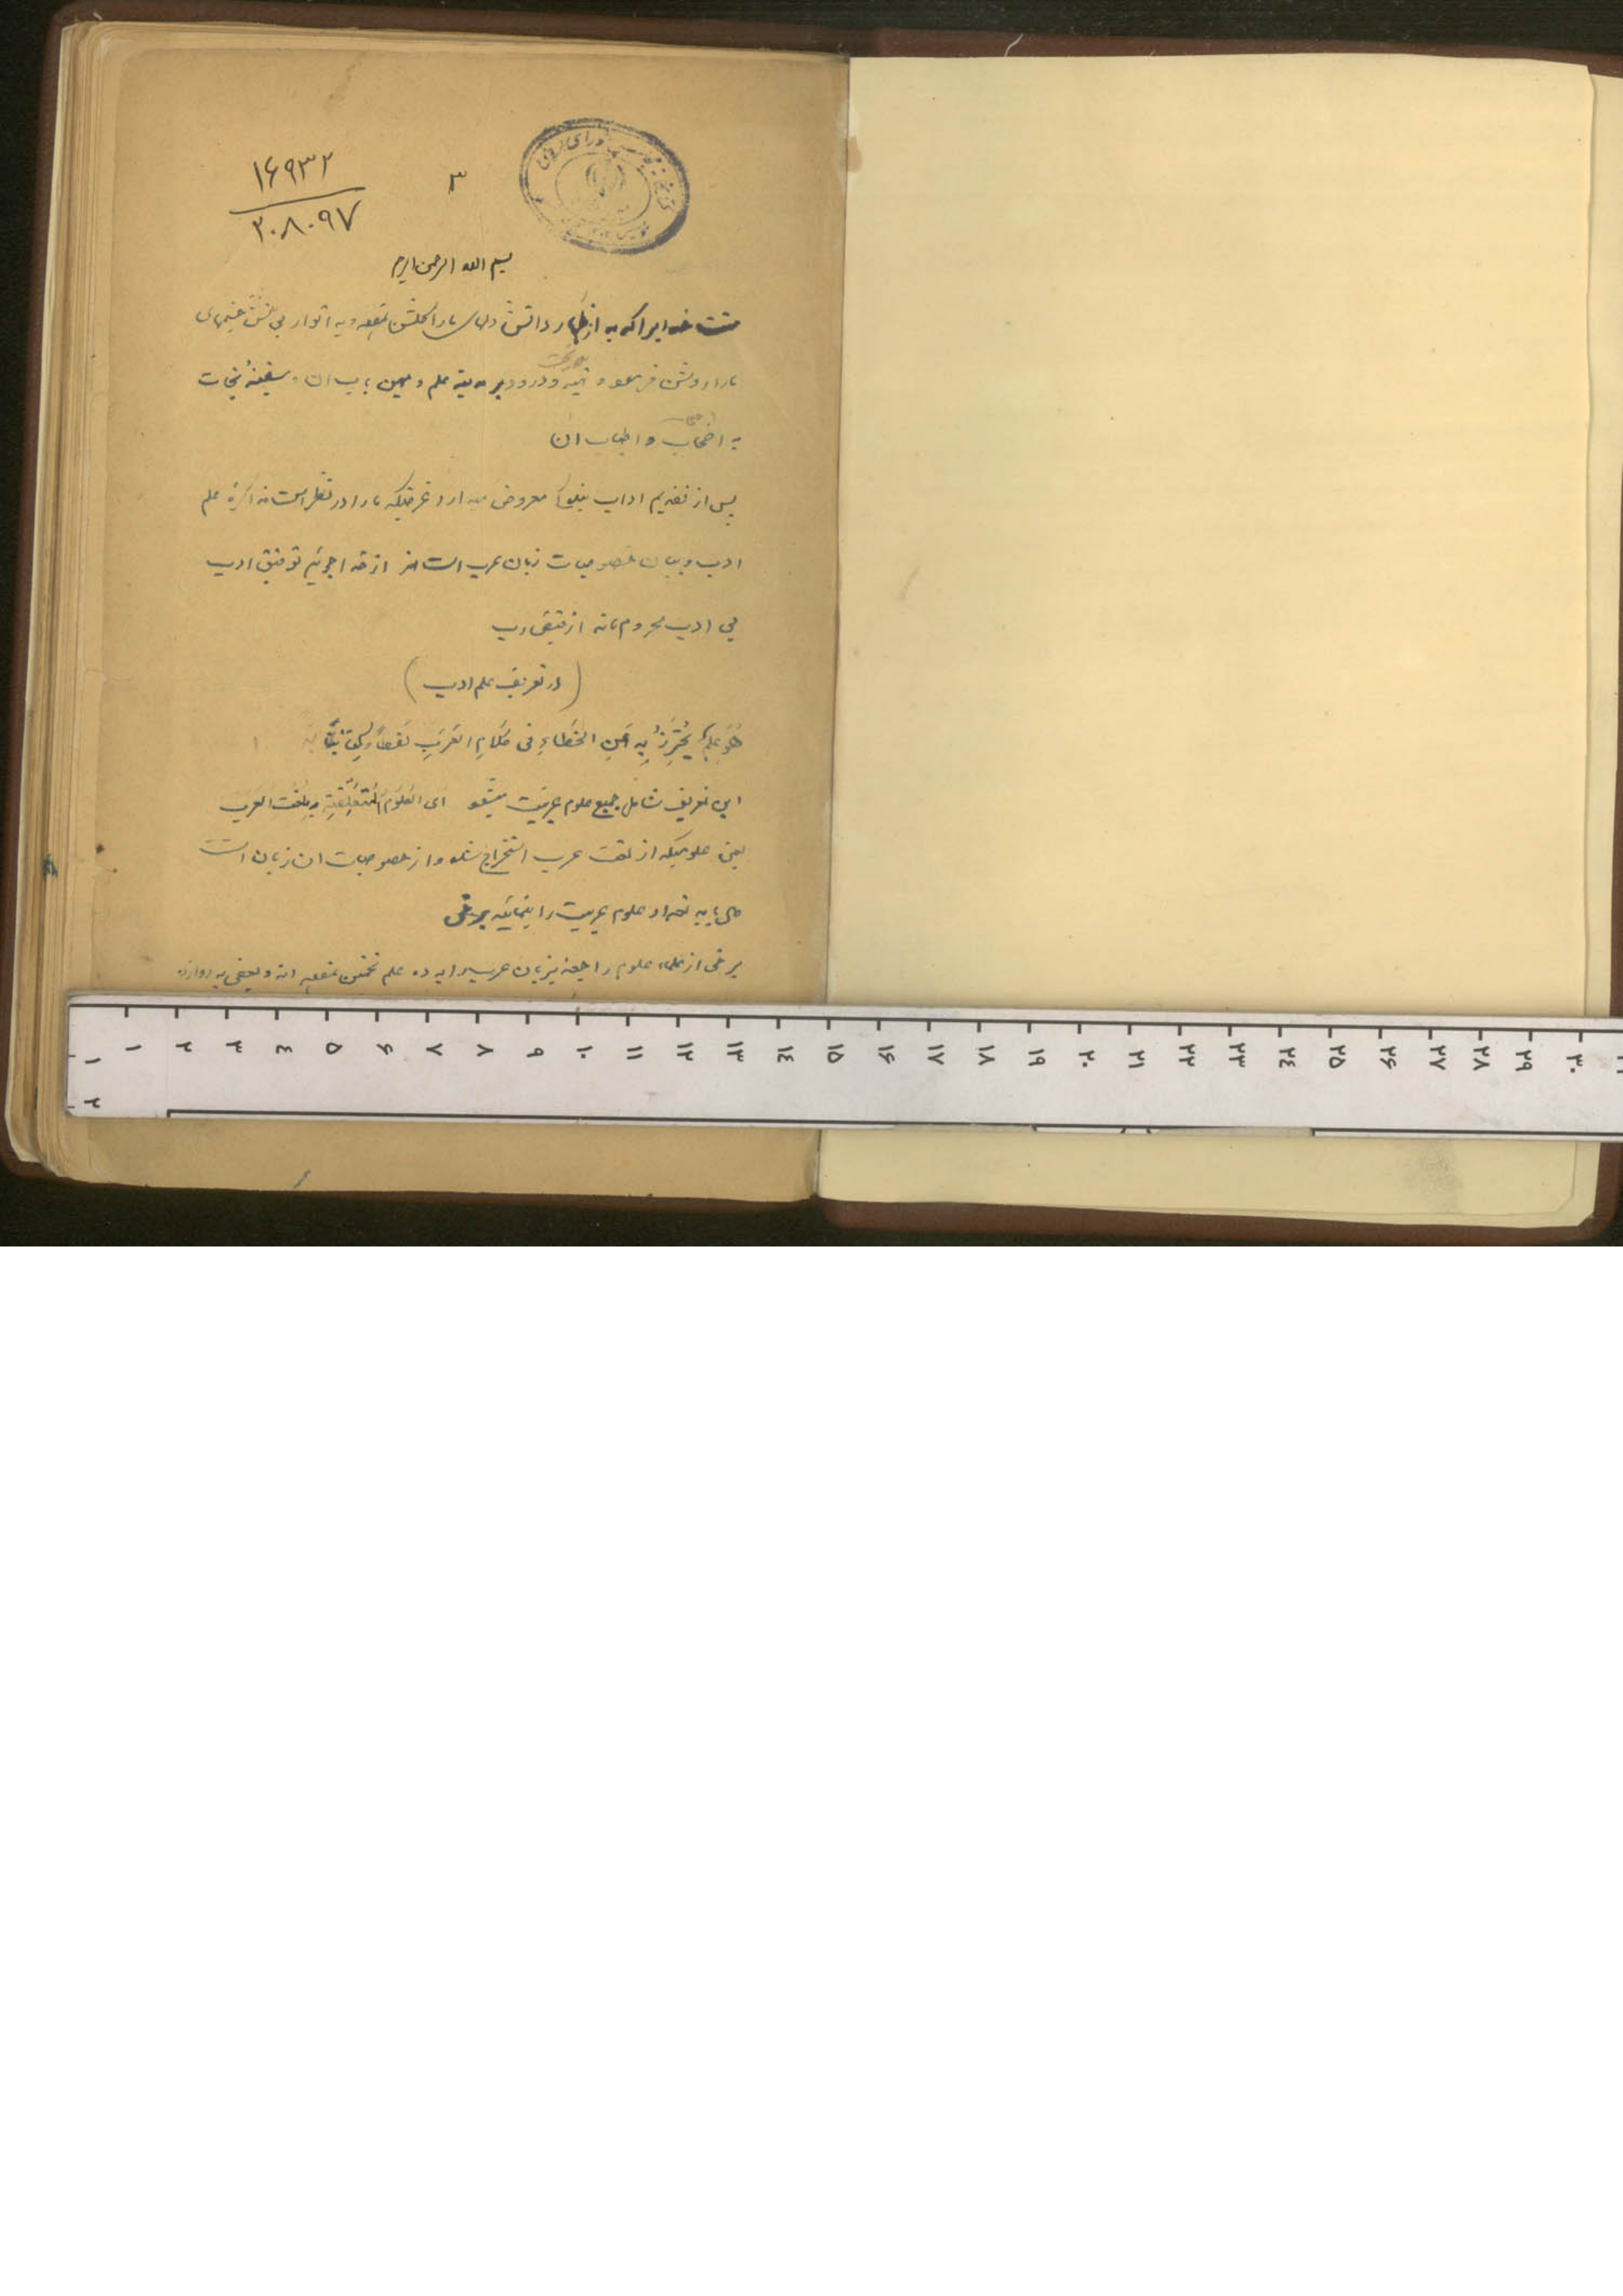 ۱۶۹۳۲
۲۰۸۰۹۷
۳
بسم الله الرحمن الرحیم
منت خدایرا که به ازهار دانش دلهای ما را گلشن نموده و به انوار بینش چشمهای
ما را روشن فرموده و درود بر مدینه علم و باب ان و سفینه نجات
به اصحاب و اطیاب ان
پس از تقدیم اداب معروض میدارد غرضیکه ما را در نظر است مذاکره علم
ادب و بیان خصوصیات زبان عرب است از خدا جوئیم توفیق ادب
بی ادب محروم ماند از فیض رب
(در تعریف علم ادب)
هُوَ عِلمٌ یُحتَرَزُ بِهِ عَنِ الخَطاءِ فی کَلامِ العَرَبِ لَفظاً وَ کِتابَةً
این تعریف شامل جمیع علوم عربیت میشود ای العُلومِ المُتَعَلِّقَةِ بِلُغَت العرب
یعنی علومیکه از لغت عرب استخراج شده و از خصوصیات ان زبان است
حال باید تعداد علوم عربیت را بنمائیم برخی
برخی از علماء علوم راجعه بزبان عرب را به ده علم تخمین نموده اند و بعضی به دوازده
۱ ۲ ۳ ٤ ۵ ۶ ۷ ۸ ۹ ۱۰ ۱۱ ۱۲ ۱۳ ۱٤ ۱۵ ۱۶ ۱۷ ۱۸ ۱۹ ۲۰ ۲۱ ۲۲ ۲۳ ۲٤ ۲۵ ۲۶ ۲۷ ۲۸ ۲۹ ۳۰
۱
۲